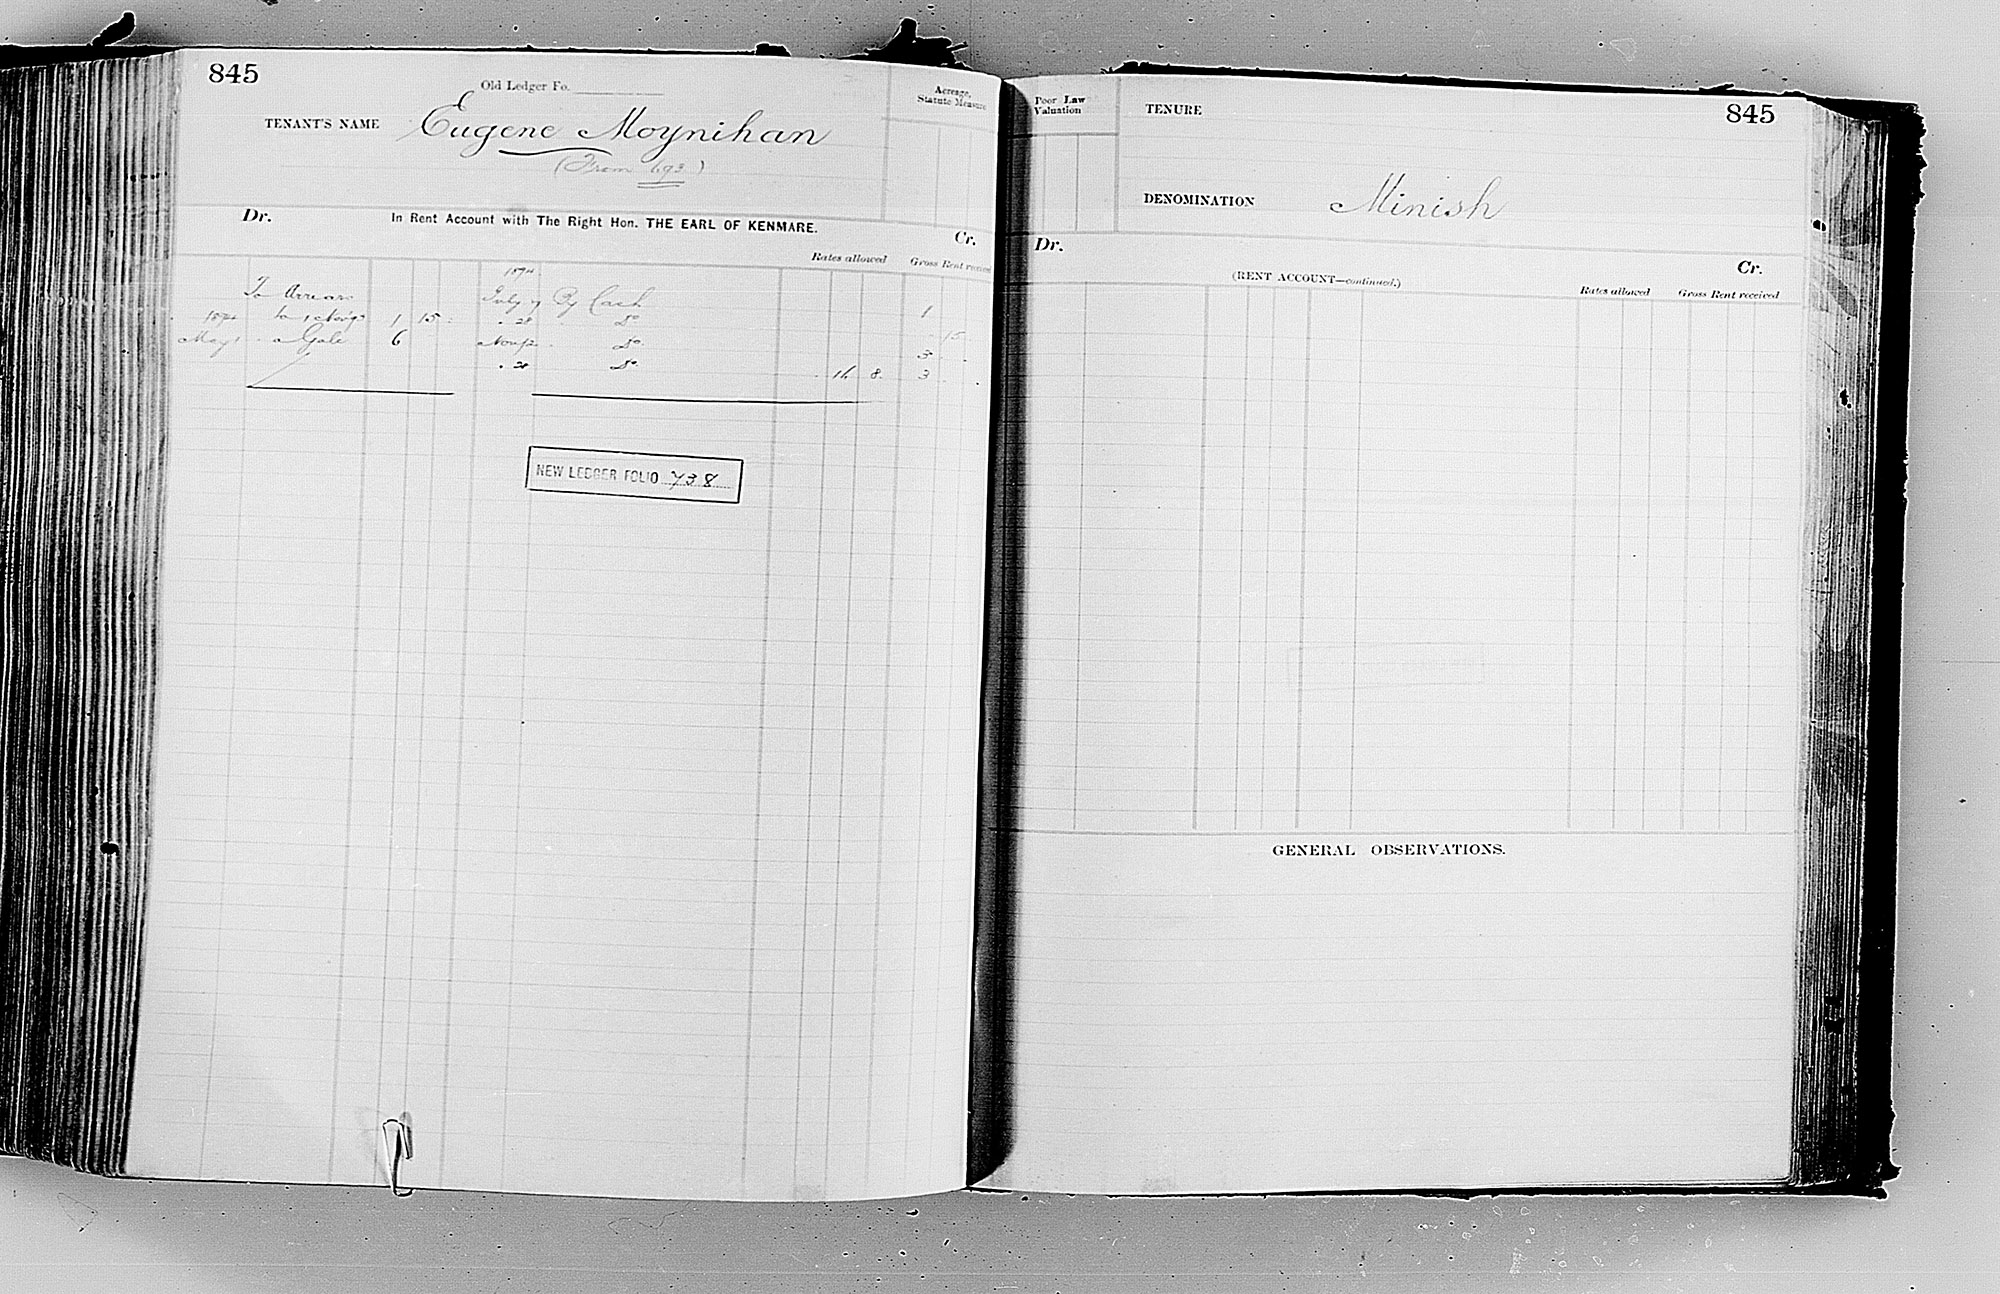 845
Old Ledger Fo.
TENANT'S NAME Eugene Moynihan
(From 693)
Acreage,
Statute Measure
Dr. In Rent Account with The Right Hon. THE EARL OF KENMARE. Cr.
Rates allowed Gross Rent received
1894
To Arrears July 9 By Cash 1
1894 to 1 Nov 93 1 15 " 28 Do 15
May 1 " a Gale 6 Nov 12 " Do 3
" 28 Do 8 3
NEW LEDGER FOLIO 738
Poor Law
Valuation
TENURE
845
DENOMINATION Minish
Dr. Cr.
(RENT ACCOUNT—continued.)
Rates allowed Gross Rent received
GENERAL OBSERVATIONS.